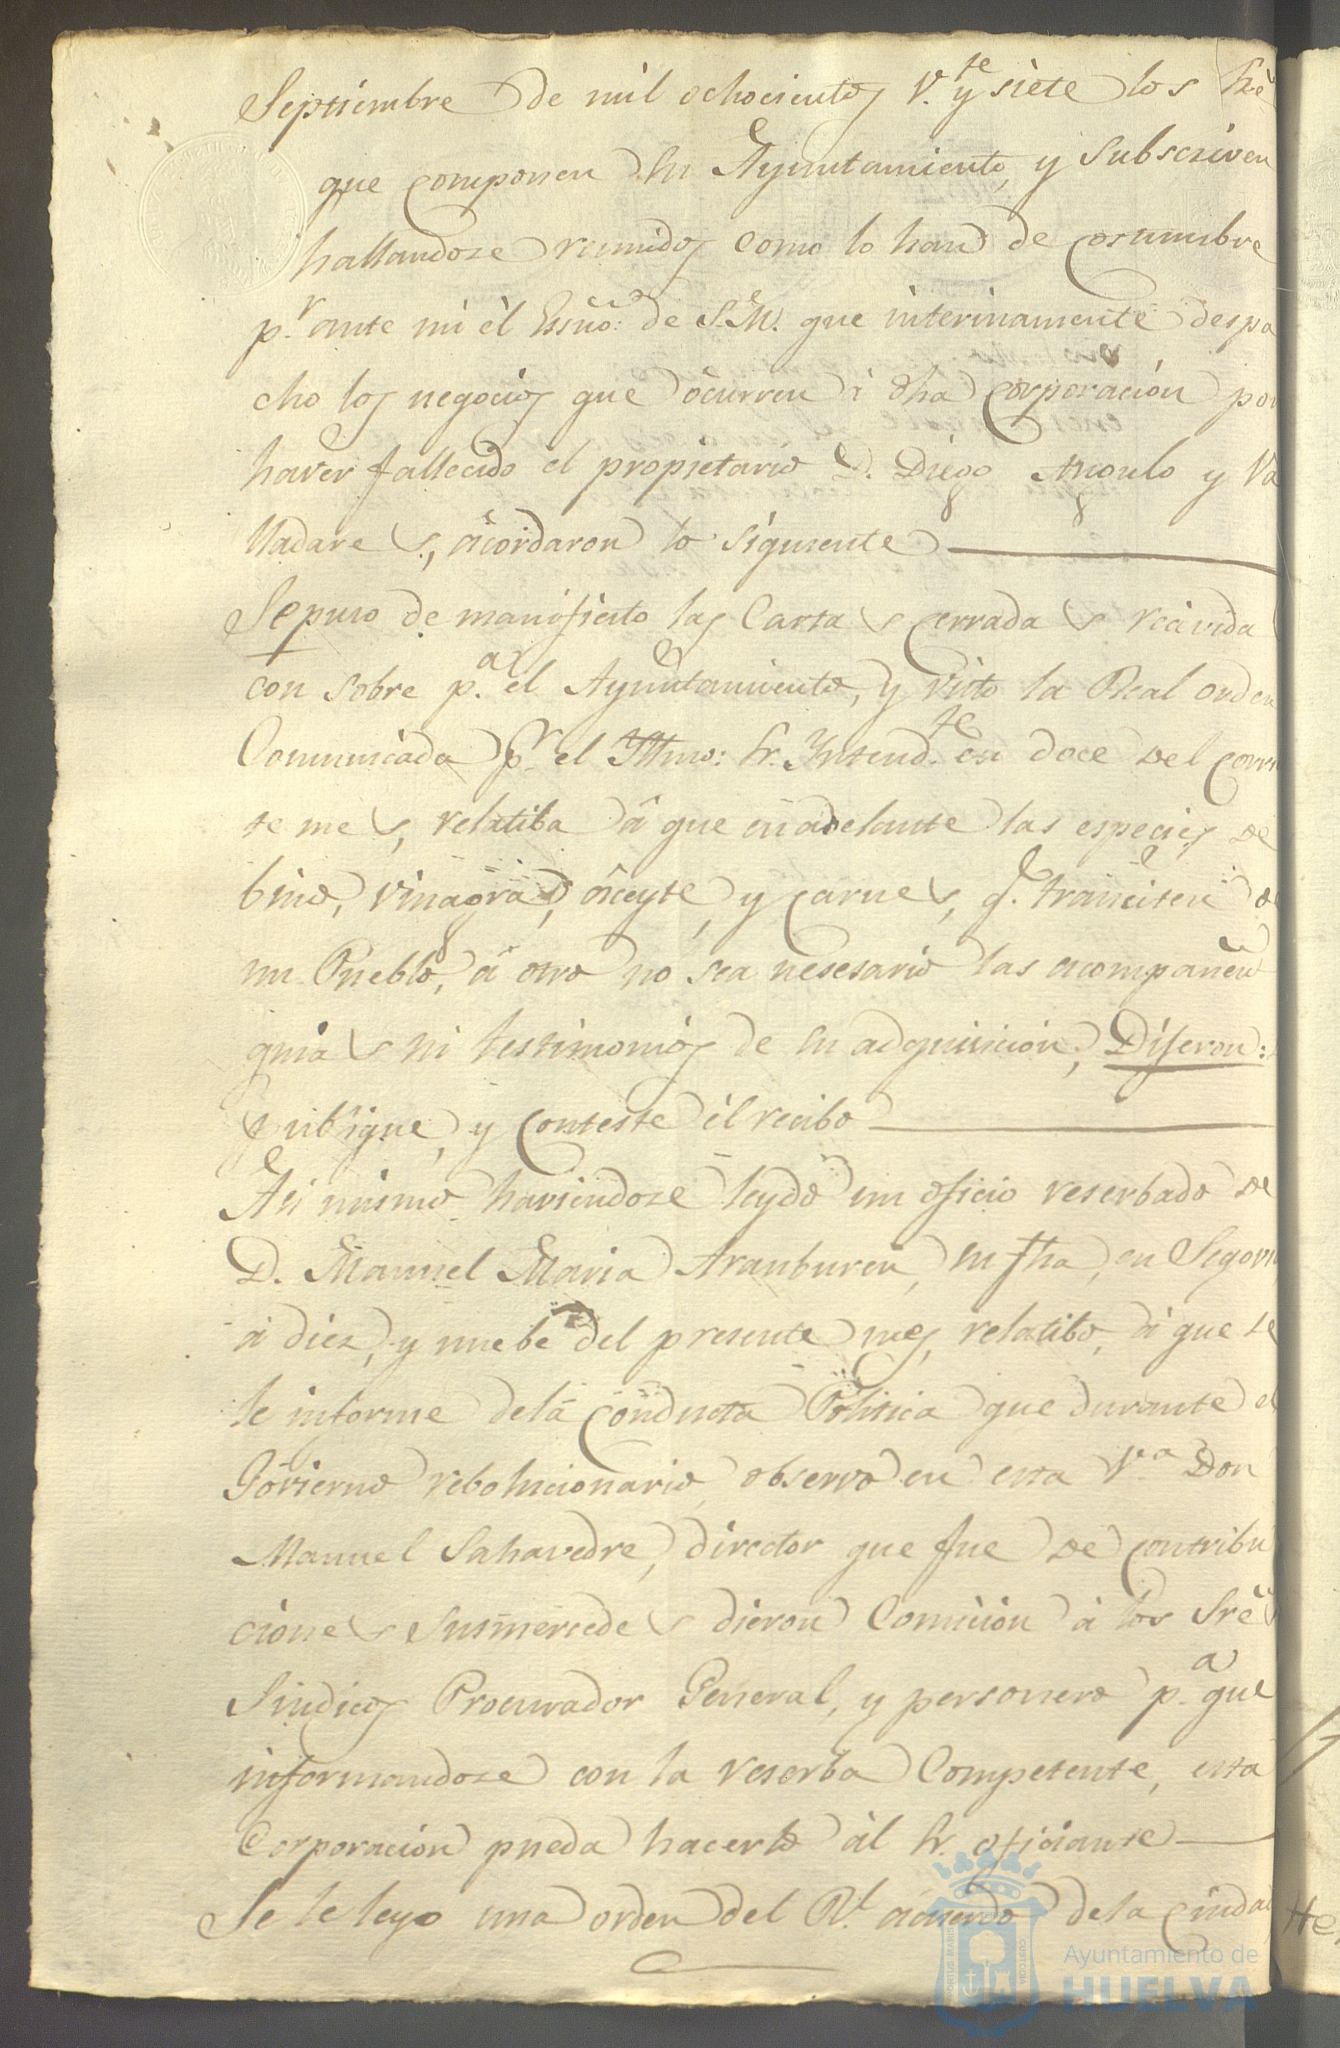 Septiembre de mil ochocientos v.te y siete los Sre
que componen su Ayuntamiento, y subscriven
hallandose reunidos como lo han de costumbre
p.r ante mi él Essno: de S.M. que interinamente despa
cho los negocios que ocurren á dha corporación por
haver fallecido el propietario D. Diego Angulo y Va
lladares, acordaron lo siguiente
Se puso de manifiesto las Cartas cerradas recivida
con sobre p.a el Ayuntamiento, y visto la Real orden
Comunicada p.r el Yltmo: Sr. Yntend.te en doce del corrie
te mes, relatiba á que en adelante las especies de
bino, vinagra, áceyte, y carnes, q.e transiten de
un Pueblo, á otro no sea nesesario las acompañen
guias ni testimonios de su adquisición, Dijeron:
publique, y conteste él recibo
Asi mismo haviendose leydo un oficio reserbado de
D. Manuel Maria Aranburen, su fha, en Segovia
á diez, y nuebe del presente mes, relatibo, á que se
le informe de la conducta Politica que durante el
Govierno rebolucionario, observo en esta V.a Don
Manuel Sahavedre, director que fue de contribu
ciones susmercedes dieron Comición á los Sres
Sindicos Procurador General, y personero p.a que
informandose con la reserba Competente, esta
Corporación pueda hacerlo ál Sr. oficiante
Se le leyo una orden del Rl. acuerdo de la Ciudad
Ayuntamiento de
HUELVA